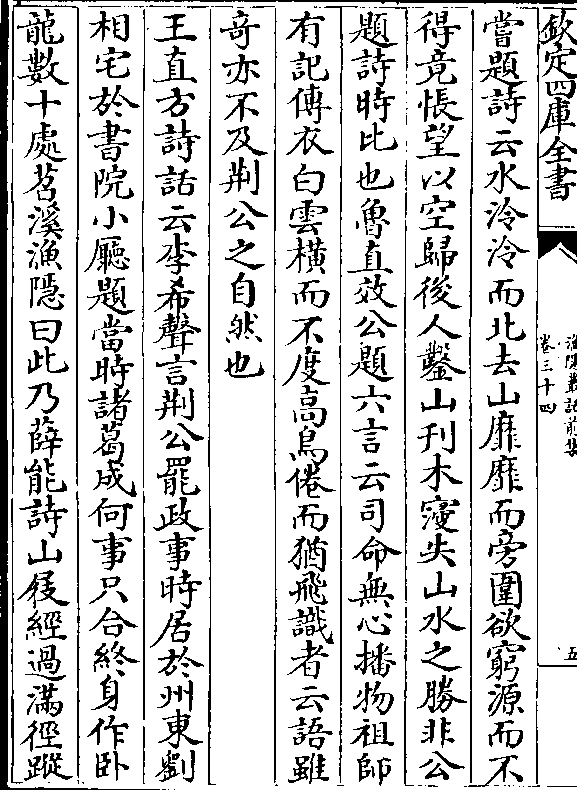 欽定四庫全書
漁隠叢話前集
卷三十四
五
嘗題詩云水泠泠而北去山靡靡而旁圍欲窮源而不
得竟悵望以空歸後人鑿山刋木寖失山水之勝非公
題詩時比也魯直效公題六言云司命無心播物祖師
有記傳衣白雲横而不度高鳥倦而猶飛識者云語雖
竒亦不及荆公之自然也
王直方詩話云李希聲言荆公罷政事時居於州東劉
相宅於書院小廳題當時諸葛成何事只合終身作卧
龍數十處苕溪漁隠曰此乃薛能詩山屐經過滿徑蹤